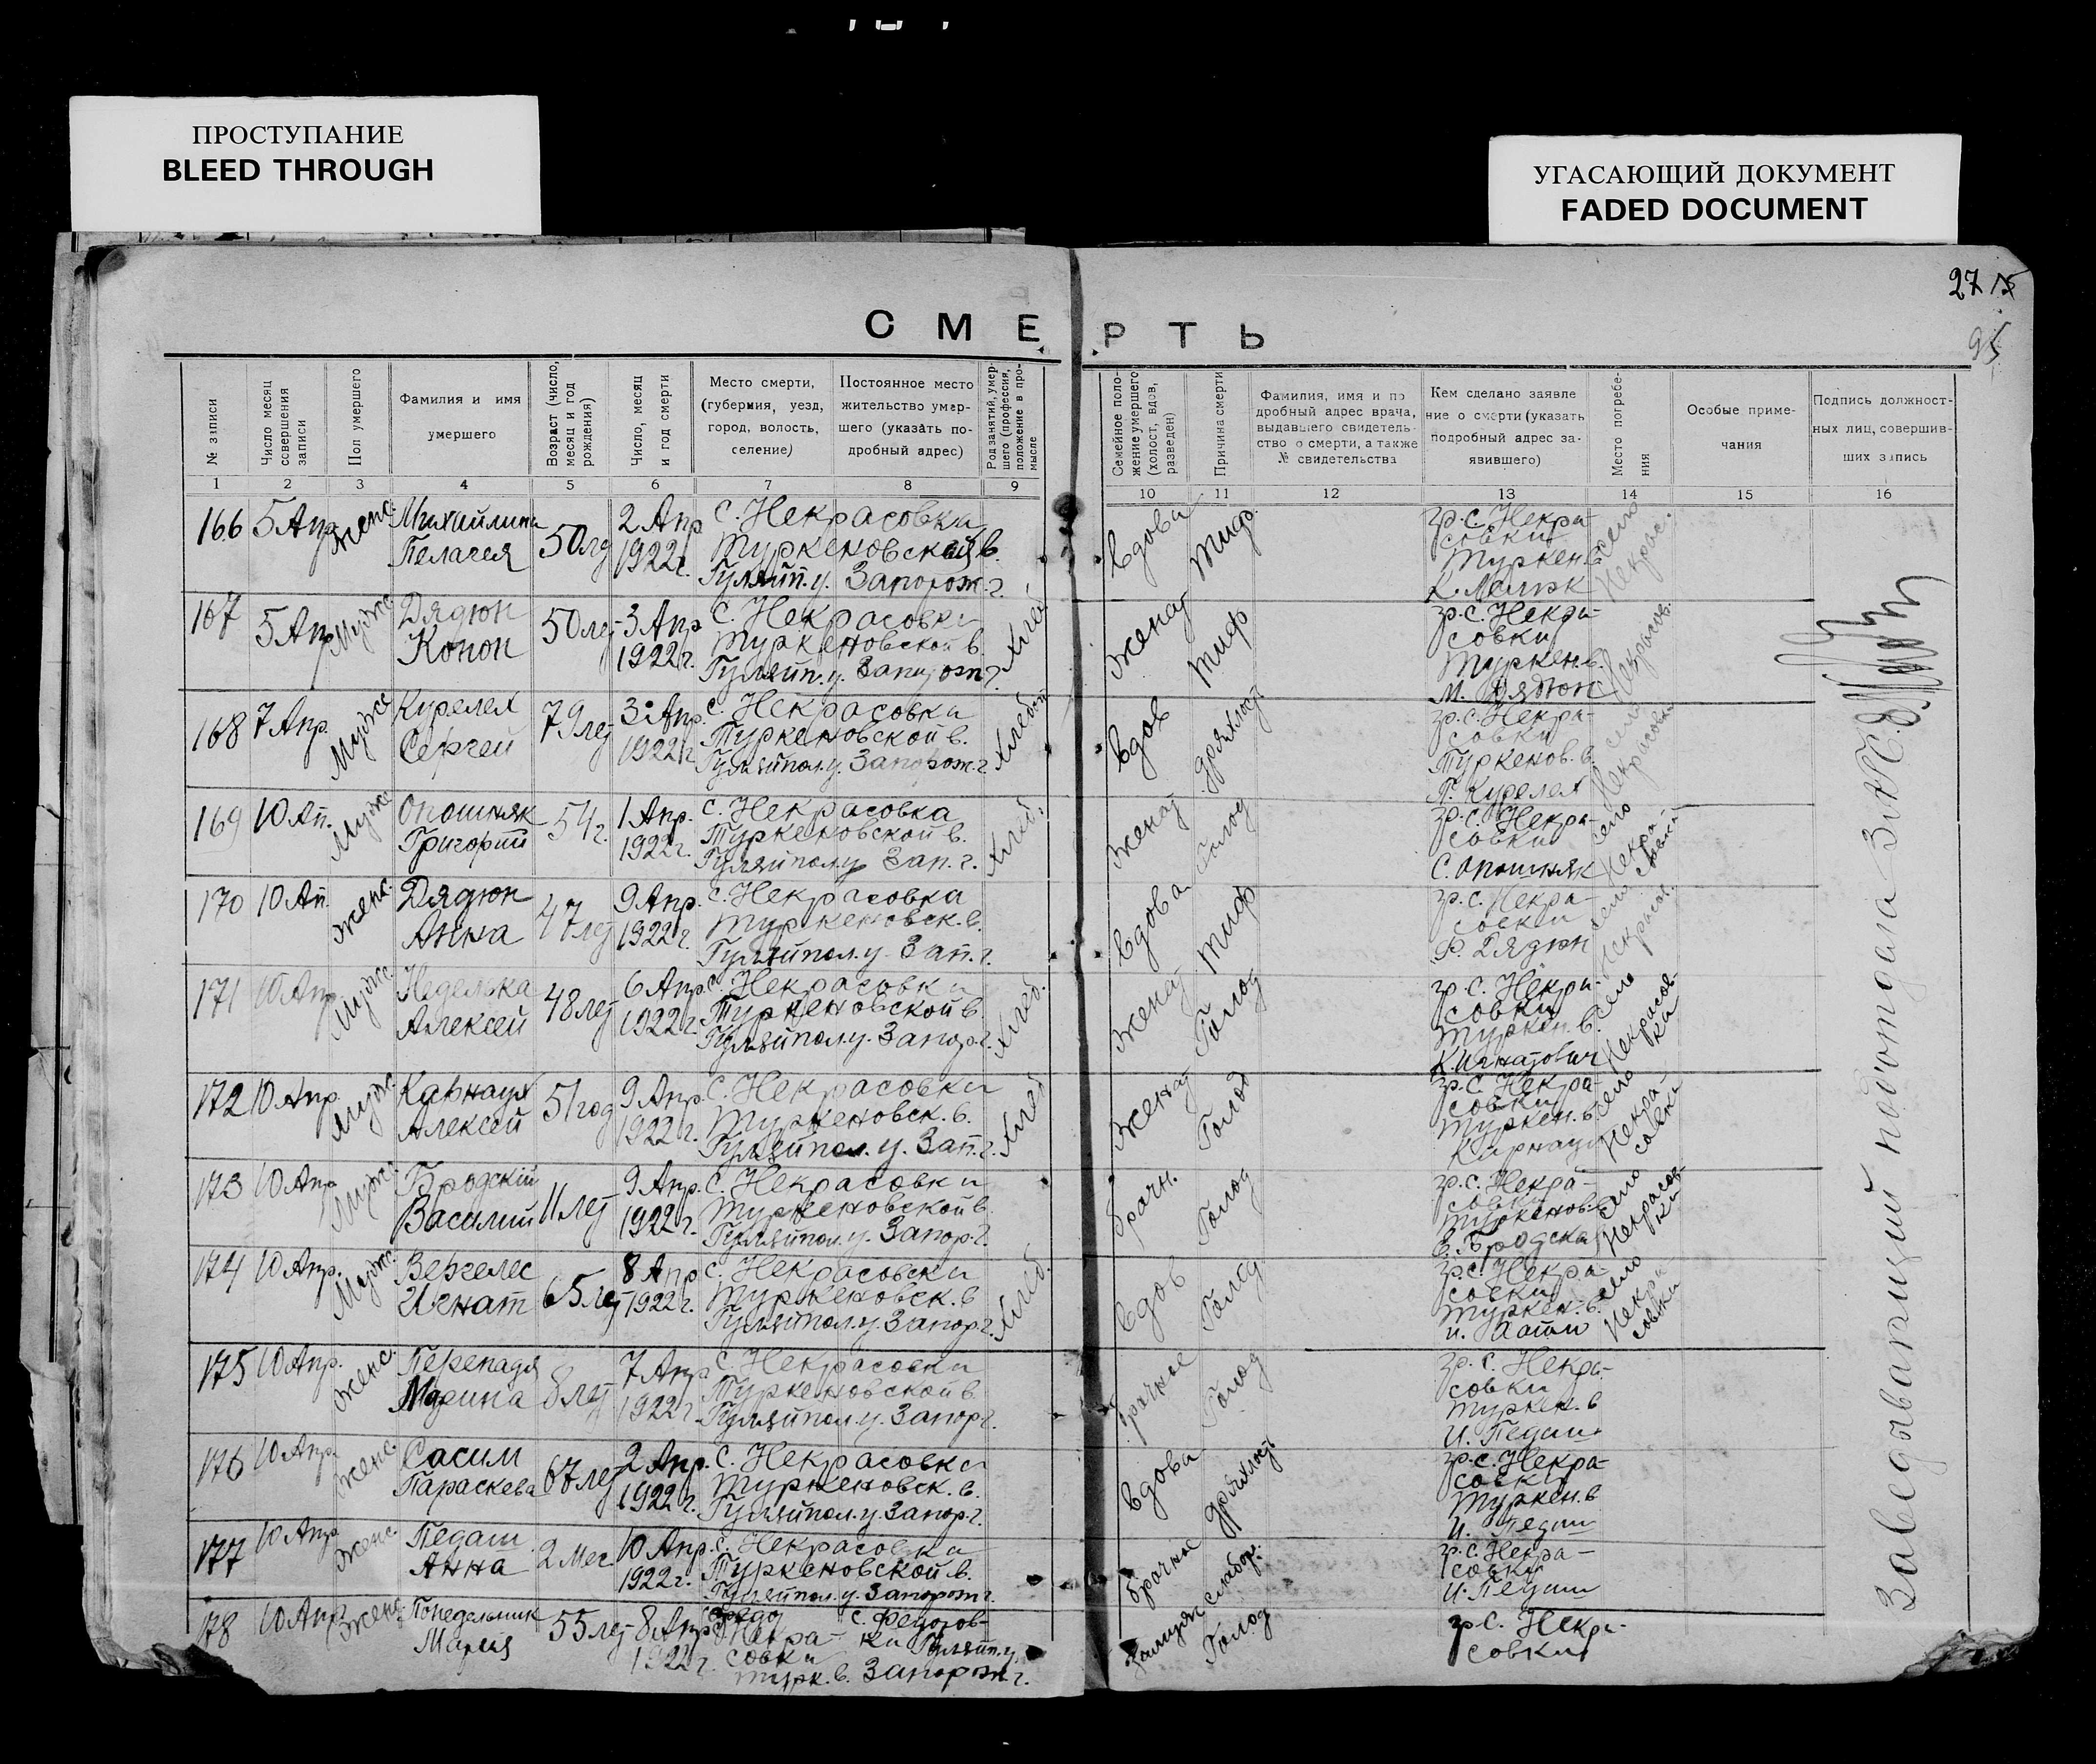 ПРОСТУПАНИЕ
BLEED THROUGH
УГАСАЮЩИЙ ДОКУМЕНТ
FADED DOCUMENT
27
95
СМЕРТЬ
№ записи
Число месяц совершения записи
Пол умершего
Фамилия и имя умершего
Возраст (число, месяц и год рождения)
Число, месяц и год смерти
Место смерти, (губерния, уезд, город, волость, селение)
Постоянное место жительство умершего (указать подробный адрес)
Род занятий, умершего (профессия, положение в промысле
Семейное положение умершего (холост, вдов, разведен)
Причина смерти
Фамилия, имя и подробный адрес врача, выдавшего свидетельство о смерти, а также № свидетельства
Кем сделано заявление о смерти (указать подробный адрес заявившего)
Место погребения
Особые примечания
Подпись должностных лиц, совершивших запись
1 2 3 4 5 6 7 8 9 10 11 12 13 14 15 16
166 5 Апр. Женс. Михайлина Пелагея 50 ле 2 Апр 1922 г. с. Некрасовка Туркеновской в. Гуляйп. у. Запорож. г. вдова Тиф. гр. с. Некрасовки Туркен. в. село Некрас.
167 5 Апр Мужс Дядюн Конон 50 лет 3 Апр 1922 г. с. Некрасовки Туркеновской в. Гуляйп. у. Запорож г. Женат Тиф гр. с. Некрасовки Туркен. в. М. Дядюн Некрасов.
168 7 Апр. Мужс Курелех Сергей 79 лет 3 Апр. 1922 г. с. Некрасовки Туркеновской в. Гуляйпол. у. Запорож. г. Хлебоп вдов дряхлост гр. с. Некрасовки Туркенов. в. Курелех село Некрасовки
169 10 Ап. Мужс Опошняк Григорий 54 г. 1 Апр. 1922 г. с. Некрасовка Туркеновской в. Гуляйпол. у Зап. г. Хлеб. Женат Голод гр. с. Некрасовки С. Опошняк село
170 10 Ап. Женс. Дядюн Анна 47 лет 9 Апр. 1922 г. с. Некрасовка Туркеновск. в. Гуляйпол. у. Зап. г. вдова Тиф гр. с. Некрасовки Ф. Дядюн село Некрасов.
171 10 Апр Мужс. Неделька Алексей 48 лет 6 Апр. 1922 г. с. Некрасовки Туркеновской в. Гуляйпол. у. Запор. г. Хлеб. Женат Голод гр. с. Некрасовки Туркен. в. К. Игнатович село Некрасовка
172 10 Апр Мужс. Карнаух Алексей 51 год 9 Апр. 1922 г. с. Некрасовки Туркеновск. в. Гуляйпол. у. Зап. г. Хлеб Женат Голод гр. с. Некрасовки Туркен. в. Карнаух село Некрасовки
173 10 Апр Мужс. Бродскій Василий 11 лет 9 Апр. 1922 г. с. Некрасовки Туркеновской в. Гуляйпол. у. Запор. г. брачн. Голод гр. с. Некрасовки Туркенов. в. село Некрасовки
174 10 Апр. Мужс. Вергелес Игнат 65 лет 8 Апр 1922 г. с. Некрасовки Туркеновск. в Гуляйпол. у. Запор. г. Хлеб. вдов Голод гр. с. Некрасовки Туркен. в. село Некрасовки
175 10 Апр. Женс. Перепадя Марина 8 лет 7 Апр 1922 г. с. Некрасовки Туркеновской в. Гуляйпол. у. Запор. г. брачное Голод гр. с. Некрасовки Туркен. в И. Педаш
176 10 Апр. Женс. Сасим Параскева 67 лет 2 Апр. 1922 г. с. Некрасовки Туркеновск. в. Гуляйпол. у. Запор. г. вдова дряхлост гр. с. Некрасовки Туркен. в И. Педаш
177 10 Апр Женс. Педаш Анна 2 мес. 10 Апр. 1922 г. с. Некрасовка Туркеновской в. Гуляйпол. у. Запорож г. брачное слабор. гр. с. Некрасовки И. Педаш
178 10 Апр Женс. Понедельник Мария 55 лет 8 Апр 1922 г. Некрасовки Турк. в. с. Федоровки Гуляйп. у. Запорож. г. Замуж Голод гр с. Некрасовки
Заведывающий подотдела ЗАГС.